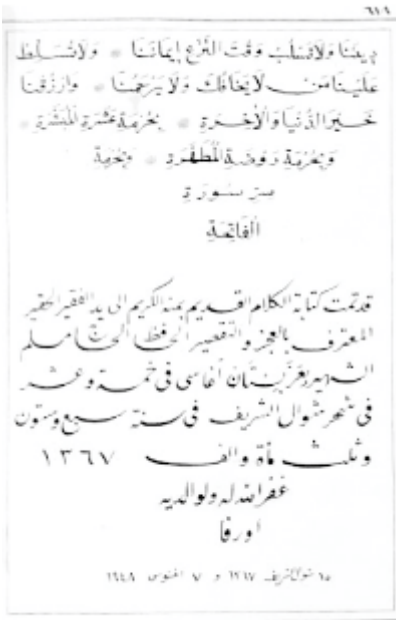 ٦١٩
دِينَنَا وَلَا تَسْلُبْ وَقْتَ النَّزْعِ إِيمَانَنَا * وَلَا تُسَلِّطْ
عَلَيْنَا مَنْ لَا يَخَافُكَ وَلَا يَرْحَمُنَا * وَارْزُقْنَا
خَيْرَ الدُّنْيَا وَالْآخِرَةِ * بِحُرْمَةِ عَشَرَةِ الْمُبَشَّرَةِ *
وَبِحُرْمَةِ رَوْضَةِ الْمُطَهَّرَةِ * وَبِحُرْمَةِ
سِرِّ سُورَةِ
الْفَاتِحَةِ
قد تمت كتابة الكلام القديم بمنه الكريم الى يد الفقير الحقير
المعترف بالعجز والتقصير الحافظ الحاج مسلم
الشهير بعربستان آغاسى فى خمسة وعشر
فى شهر شوال الشريف فى سنة سبع وستون
وثلث مأة والف ١٣٦٧
غفر الله له ولوالديه
اورفا
١٥ شوال شريف ١٣٦٧ و اغستوس ١٩٤٨